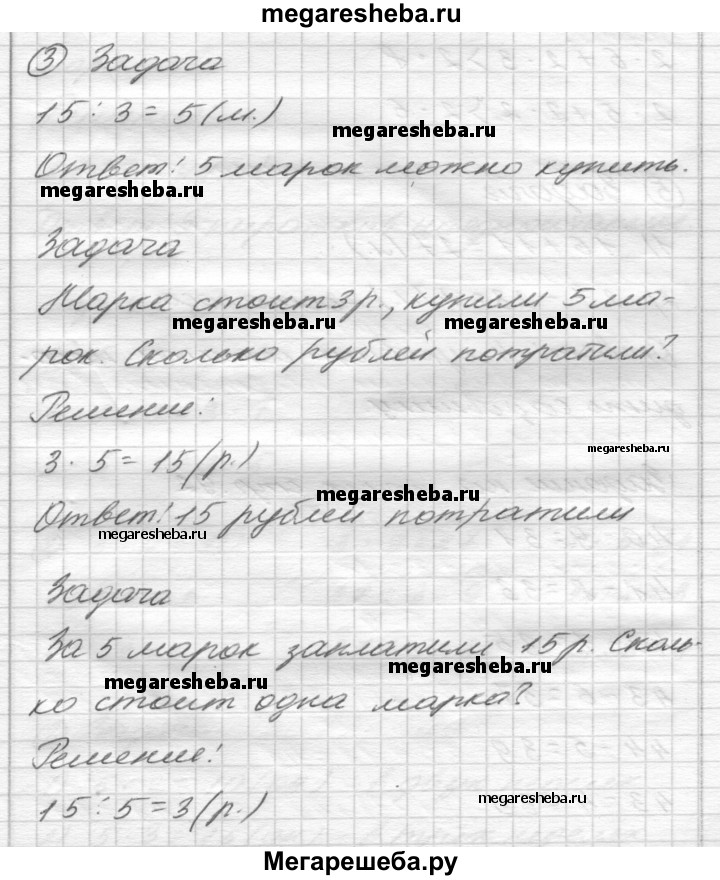 megaresheba.ru
③ Задача
15 : 3 = 5 (м.)
megaresheba.ru
Ответ: 5 марок можно купить.
megaresheba.ru
Задача
Марка стоит 3 р., купили 5 ма-
megaresheba.ru megaresheba.ru
рок. Сколько рублей потратили?
Решение:
megaresheba.ru
3 · 5 = 15 (р.)
megaresheba.ru
Ответ: 15 рублей потратили
megaresheba.ru
Задача
За 5 марок заплатили 15 р. Сколь-
megaresheba.ru
megaresheba.ru
ко стоит одна марка?
Решение:
megaresheba.ru
15 : 5 = 3 (р.)
Мегарешеба.ру